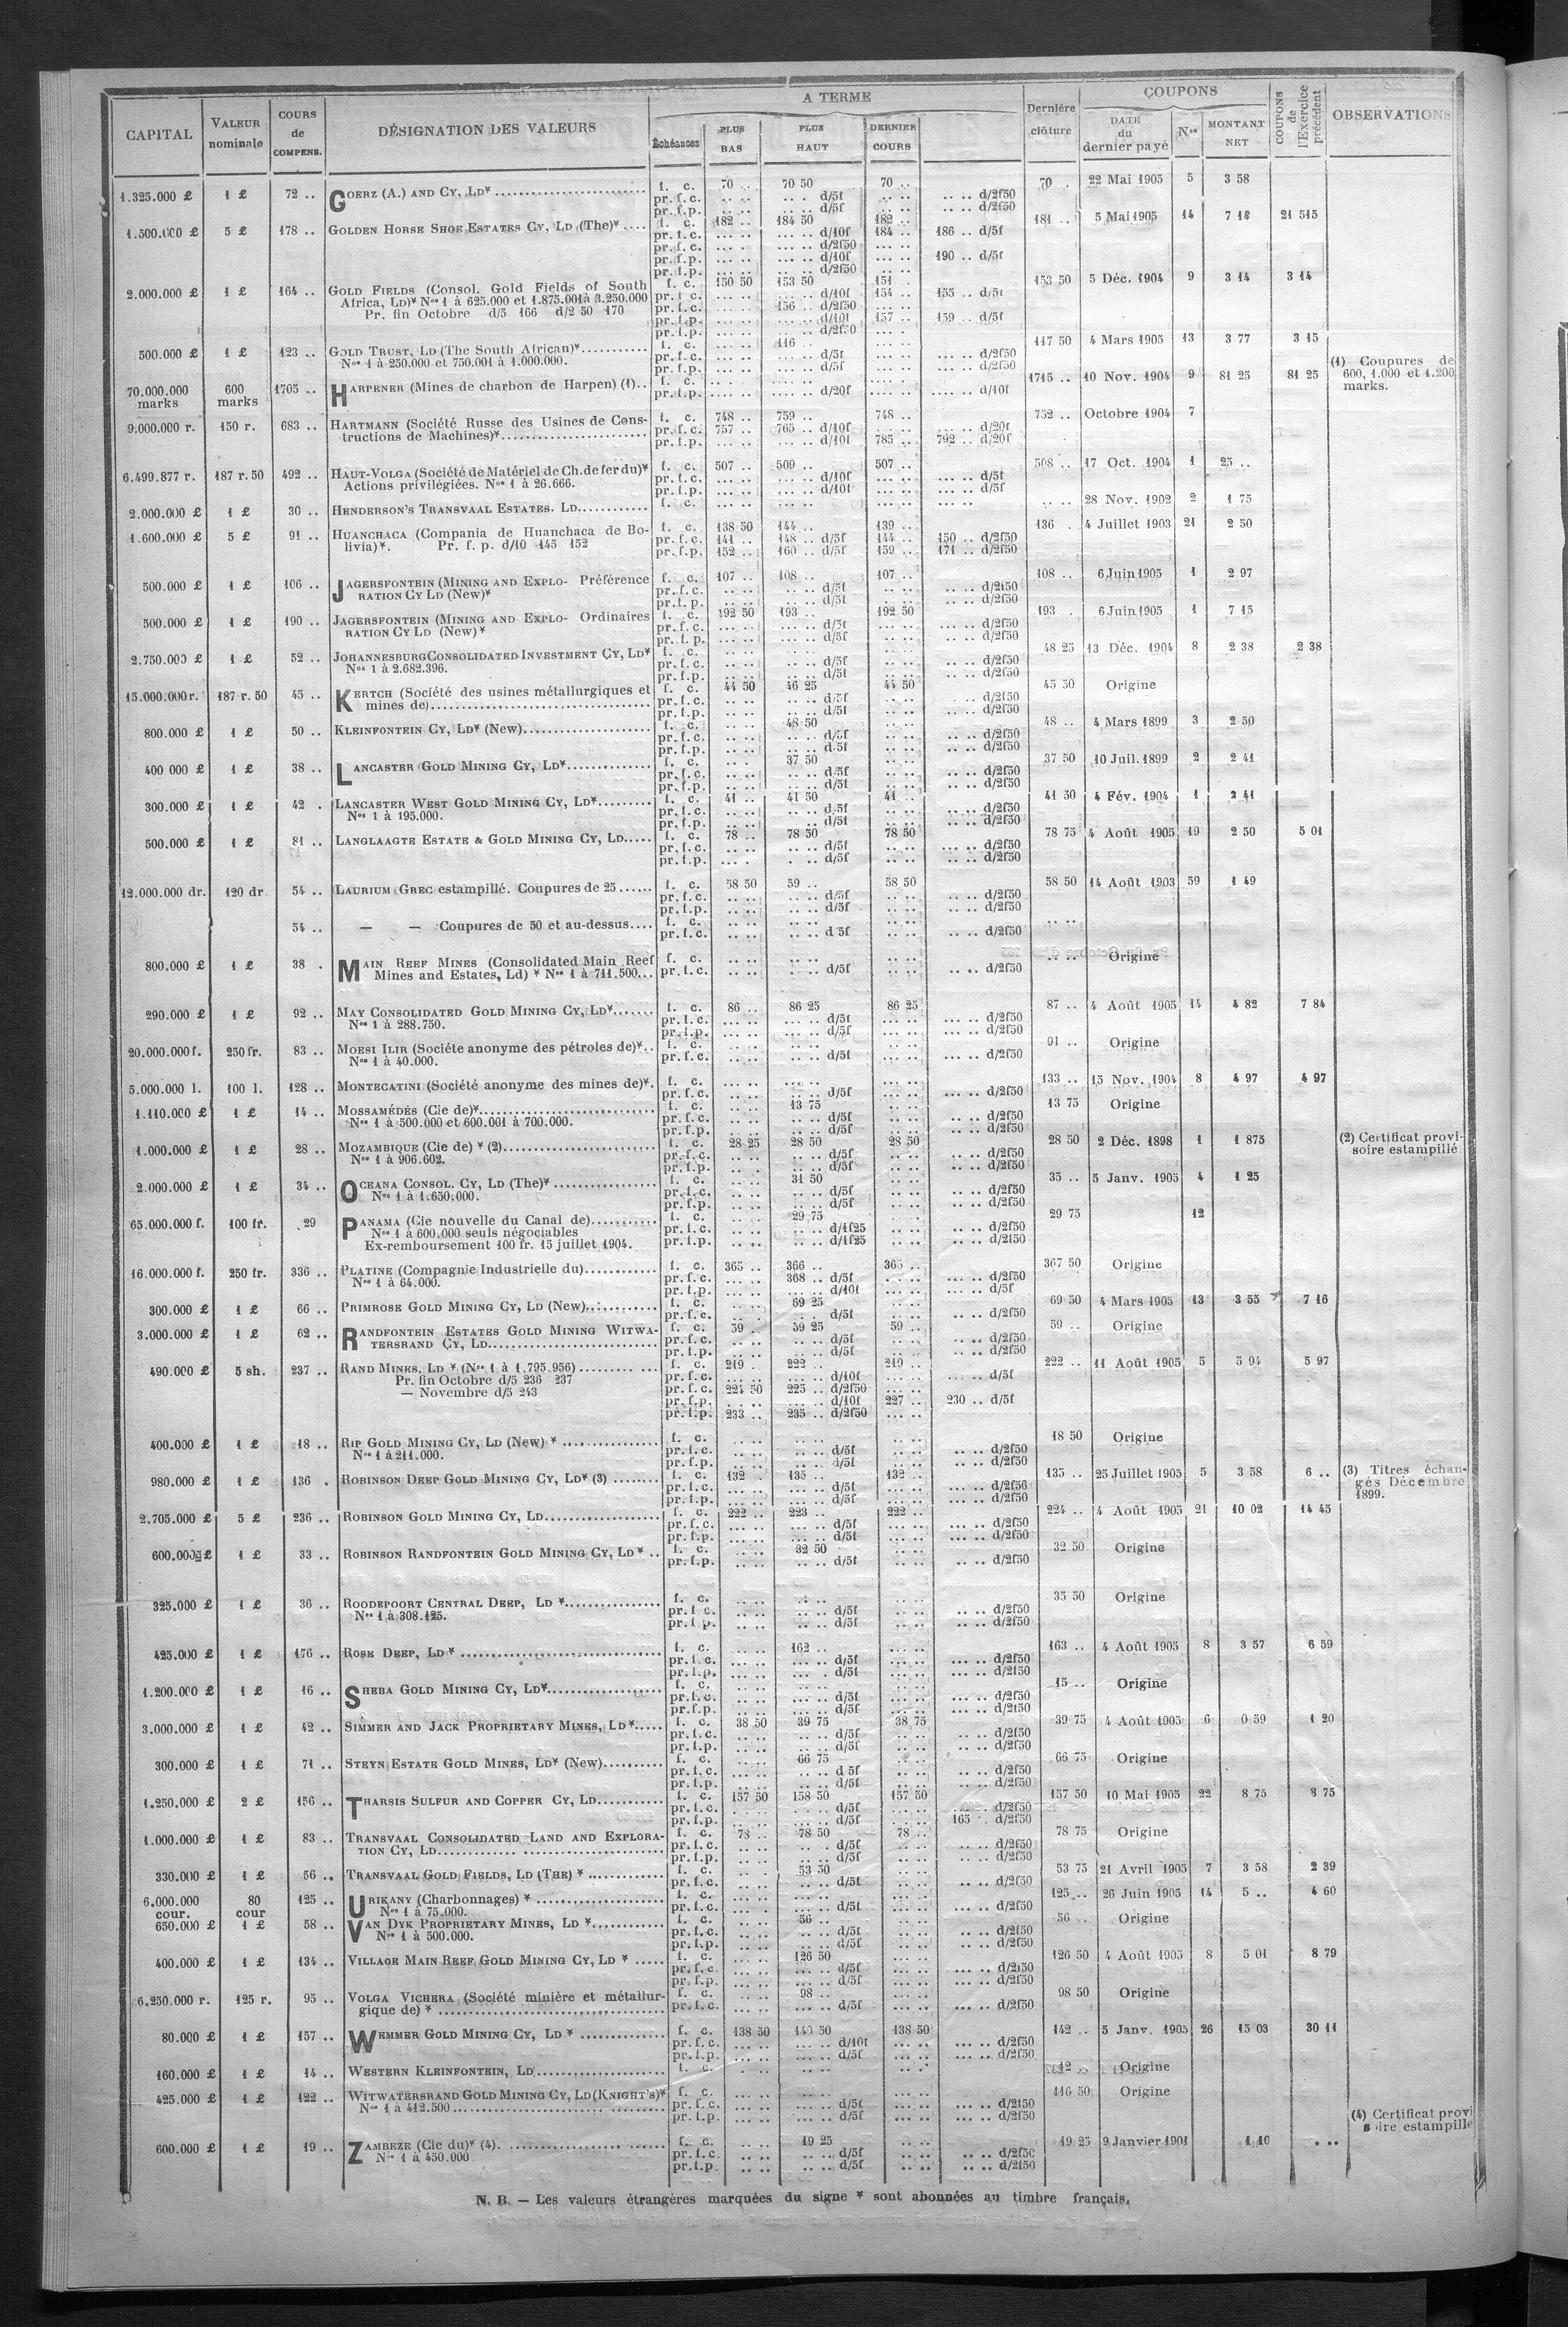 CAPITAL | VALEUR nominale | COURS de COMPENS. | DÉSIGNATION DES VALEURS | A TERME | Dernière clôture | COUPONS | COUPONS de l'Exercice précédent | OBSERVATIONS
Échéances | PLUS BAS | PLUS HAUT | DERNIER COURS | DATE du dernier payé | Nos | MONTANT NET
1.325.000 £ | 1 £ | 72 .. | GOERZ (A.) AND CY, LD* | f. c. | 70 .. | 70 50 | 70 .. | 70 . | 22 Mai 1905 | 5 | 3 58
pr. f. c. .. .. .. . d/5f .. .. .. .. d/2f50
pr. f. p. .. .. .. .. d/5f .. .. .. .. d/2f50
1.500.000 £ | 5 £ | 178 .. | GOLDEN HORSE SHOE ESTATES CY, LD (The)* .... | f. c. | 182 .. | 184 50 | 182 .. | 181 .. | 5 Mai 1905 | 14 | 7 18 | 21 515
pr. f. c. ... .. ... .. d/10f 184 .. 186 .. d/5f
pr. f. c. ... . ... .. d/2f50 ... ..
pr. f. p. ... .. ... .. d/10f ... .. 190 .. d/5f
pr. f. p. ... .. ... .. d/2f50 ... ..
2.000.000 £ | 1 £ | 164 .. | GOLD FIELDS (Consol. Gold Fields of South | f. c. | 150 50 | 153 50 | 151 . | 153 50 | 5 Déc. 1904 | 9 | 3 14 | 3 14
Africa, LD)* Nos 1 à 625.000 et 1.875.001 à 3.250.000 | pr. f. c. ... .. ... .. d/10f 154 .. 155 .. d/5f
Pr. fin Octobre d/5 166 d/2 50 170 | pr. f. c. ... .. 156 .. d/2f50 ... ..
pr. f. p. ... .. ... .. d/10f 157 .. 159 .. d/5f
pr. f. p. ... .. ... .. d/2f50 ... .
500.000 £ | 1 £ | 123 .. | GOLD TRUST, LD (The South African)* | f. c. | ... .. | 116 .. | 117 50 | 4 Mars 1905 | 13 | 3 77 | 3 15
Nos 1 à 250.000 et 750.001 à 1.000.000. | pr. f. c. d/5f d/2f50
pr. f. p. d/5f d/2f50
70.000.000 marks | 600 marks | 1705 .. | HARPENER (Mines de charbon de Harpen) (1).. | f. c. | 1715 .. | 10 Nov. 1904 | 9 | 81 25 | 81 25 | (1) Coupures de 600, 1.000 et 1.200 marks.
pr. f. p. d/20f d/10f
9.000.000 r. | 150 r. | 683 .. | HARTMANN (Société Russe des Usines de Cons- | f. c. | 748 .. | 759 .. | 748 .. | 752 .. | Octobre 1904 | 7
tructions de Machines)* | pr. f. c. 757 .. 765 .. d/10f ... .. d/20f
pr. f. p. ... .. ... .. d/10f 785 .. 792 .. d/20f
6.499.877 r. | 187 r. 50 | 492 .. | HAUT-VOLGA (Société de Matériel de Ch. de fer du)* | f. c. | 507 .. | 509 .. | 507 .. | 508 .. | 17 Oct. 1904 | 1 | 25 ..
Actions privilégiées. Nos 1 à 26.666. | pr. f. c. d/10f d/5f
pr. f. p. d/10f d/5f
2.000.000 £ | 1 £ | 30 .. | HENDERSON'S TRANSVAAL ESTATES. LD | f. c. | .. .. | 28 Nov. 1902 | 2 | 1 75
1.600.000 £ | 5 £ | 91 .. | HUANCHACA (Compania de Huanchaca de Bo- | f. c. | 138 50 | 144 .. | 139 .. | 136 . | 4 Juillet 1903 | 21 | 2 50
livia)*. Pr. f. p. d/10 145 152 | pr. f. c. 141 .. 148 .. d/5f 144 .. 150 .. d/2f50
pr. f. p. 152 .. 160 .. d/5f 159 .. 171 .. d/2f50
500.000 £ | 1 £ | 106 .. | JAGERSFONTEIN (MINING AND EXPLO- Préférence | f. c. | 107 .. | 108 .. | 107 .. | 108 .. | 6 Juin 1905 | 1 | 2 97
RATION CY LD (New)* | pr. f. c. d/5f d/2f50
pr. f. p. d/5f d/2f50
500.000 £ | 1 £ | 190 .. | JAGERSFONTEIN (MINING AND EXPLO- Ordinaires | f. c. | 192 50 | 193 .. | 192 50 | 193 . | 6 Juin 1905 | 1 | 7 15
RATION CY LD (New)* | pr. f. c. d/5f d/2f50
pr. f. p. d/5f d/2f50
2.750.000 £ | 1 £ | 52 .. | JOHANNESBURG CONSOLIDATED INVESTMENT CY, LD* | f. c. | 48 25 | 13 Déc. 1904 | 8 | 2 38 | 2 38
Nos 1 à 2.682.396. | pr. f. c. d/5f d/2f50
pr. f. p. d/5f d/2f50
15.000.000 r. | 187 r. 50 | 45 .. | KERTCH (Société des usines métallurgiques et | f. c. | 44 50 | 46 25 | 44 50 | 45 50 | Origine
mines de) | pr. f. c. d/5f d/2f50
pr. f. p. d/5f d/2f50
800.000 £ | 1 £ | 50 .. | KLEINFONTEIN CY, LD* (New) | f. c. | 48 50 | 48 .. | 4 Mars 1899 | 3 | 2 50
pr. f. c. d/5f d/2f50
pr. f. p. d/5f d/2f50
400 000 £ | 1 £ | 38 .. | LANCASTER GOLD MINING CY, LD* | f. c. | 37 50 | 37 50 | 10 Juil. 1899 | 2 | 2 41
pr. f. c. d/5f d/2f50
pr. f. p. d/5f d/2f50
300.000 £ | 1 £ | 42 . | LANCASTER WEST GOLD MINING CY, LD* | f. c. | 41 .. | 41 50 | 41 .. | 41 50 | 4 Fév. 1904 | 1 | 2 41
Nos 1 à 195.000. | pr. f. c. d/5f d/2f50
pr. f. p. d/5f d/2f50
500.000 £ | 1 £ | 81 .. | LANGLAAGTE ESTATE & GOLD MINING CY, LD | f. c. | 78 .. | 78 50 | 78 50 | 78 75 | 4 Août 1905 | 19 | 2 50 | 5 01
pr. f. c. d/5f d/2f50
pr. f. p. d/5f d/2f50
12.000.000 dr. | 120 dr. | 54 .. | LAURIUM GREC estampillé. Coupures de 25 | f. c. | 58 50 | 59 .. | 58 50 | 58 50 | 14 Août 1903 | 59 | 1 49
pr. f. c. d/5f d/2f50
pr. f. p. d/5f d/2f50
54 .. | — — Coupures de 50 et au-dessus | f. c. | .. ..
pr. f. c. d 5f d/2f50
800.000 £ | 1 £ | 38 . | MAIN REEF MINES (Consolidated Main Reef | f. c. | .. .. | Origine
Mines and Estates, Ld) * Nos 1 à 711.500... | pr. f. c. d/5f d/2f50
290.000 £ | 1 £ | 92 .. | MAY CONSOLIDATED GOLD MINING CY, LD* | f. c. | 86 .. | 86 25 | 86 25 | 87 .. | 4 Août 1905 | 14 | 4 82 | 7 84
Nos 1 à 288.750. | pr. f. c. d/5f d/2f50
pr. f. p. d/5f d/2f50
20.000.000 f. | 250 fr. | 83 .. | MOESI ILIR (Sociéte anonyme des pétroles de)*.. | f. c. | 91 .. | Origine
Nos 1 à 40.000. | pr. f. c. d/5f d/2f50
5.000.000 l. | 100 l. | 128 .. | MONTECATINI (Société anonyme des mines de)*. | f. c. | 133 .. | 15 Nov. 1904 | 8 | 4 97 | 4 97
pr. f. c. d/5f d/2f50
1.110.000 £ | 1 £ | 14 .. | MOSSAMÉDÈS (Cie de)* | f. c. | 13 75 | 13 75 | Origine
Nos 1 à 500.000 et 600.001 à 700.000. | pr. f. c. d/5f d/2f50
pr. f. p. d/5f d/2f50
1.000.000 £ | 1 £ | 28 .. | MOZAMBIQUE (Cie de) * (2) | f. c. | 28 25 | 28 50 | 28 50 | 28 50 | 2 Déc. 1898 | 1 | 1 875 | (2) Certificat provi- soire estampillé
Nos 1 à 906.602. | pr. f. c. d/5f d/2f50
pr. f. p. d/5f d/2f50
2.000.000 £ | 1 £ | 34 .. | OCEANA CONSOL. CY, LD (The)* | f. c. | 31 50 | 35 .. | 5 Janv. 1905 | 4 | 1 25
Nos 1 à 1.650.000. | pr. f. c. d/5f d/2f50
pr. f. p. d/5f d/2f50
65.000.000 f. | 100 fr. | 29 | PANAMA (Cie nouvelle du Canal de) | f. c. | 29 75 | 29 75 | 12
Nos 1 à 600.000 seuls négociables | pr. f. c. d/1f25 d/2f50
Ex-remboursement 100 fr. 15 juillet 1904. | pr. f. p. d/1f25 d/2f50
16.000.000 f. | 250 fr. | 336 .. | PLATINE (Compagnie Industrielle du) | f. c. | 365 .. | 366 .. | 365 .. | 367 50 | Origine
Nos 1 à 64.000. | pr. f. c. 368 .. d/5f d/2f50
pr. f. p. d/10f d/5f
300.000 £ | 1 £ | 66 .. | PRIMROSE GOLD MINING CY, LD (New) | f. c. | 69 25 | 69 50 | 4 Mars 1905 | 13 | 3 55 | 7 16
pr. f. c. d/5f d/2f50
3.000.000 £ | 1 £ | 62 .. | RANDFONTEIN ESTATES GOLD MINING WITWA- | f. c. | 59 . | 59 25 | 59 .. | 59 .. | Origine
TERSRAND CY, LD | pr. f. c. d/5f d/2f50
pr. f. p. d/5f d/2f50
490.000 £ | 5 sh. | 237 .. | RAND MINES, LD * (Nos 1 à 1.795.956) | f. c. | 219 .. | 222 .. | 219 .. | 222 .. | 11 Août 1905 | 5 | 5 94 | 5 97
Pr. fin Octobre d/5 236 237 | pr. f. c. d/10f d/5f
— Novembre d/5 243 | pr. f. c. 224 50 225 .. d/2f50
pr. f. p. d/10f 227 .. 230 .. d/5f
pr. f. p. 233 .. 235 .. d/2f50
400.000 £ | 1 £ | 18 .. | RIP GOLD MINING CY, LD (New) * | f. c. | 18 50 | Origine
Nos 1 à 211.000. | pr. f. c. d/5f d/2f50
pr. f. p. d/5f d/2f50
980.000 £ | 1 £ | 136 . | ROBINSON DEEP GOLD MINING CY, LD* (3) | f. c. | 132 . | 135 .. | 132 .. | 135 .. | 25 Juillet 1905 | 5 | 3 58 | 6 .. | (3) Titres échan- gés Décembre 1899.
pr. f. c. d/5f d/2f50
pr. f. p. d/5f d/2f50
2.705.000 £ | 5 £ | 236 .. | ROBINSON GOLD MINING CY, LD | f. c. | 222 .. | 223 .. | 222 .. | 224 .. | 4 Août 1905 | 21 | 10 02 | 14 45
pr. f. c. d/5f d/2f50
pr. f. p. d/5f d/2f50
600.000 £ | 1 £ | 33 .. | ROBINSON RANDFONTEIN GOLD MINING CY, LD * .. | f. c. | 32 50 | 32 50 | Origine
pr. f. p. d/5f d/2f50
325.000 £ | 1 £ | 36 .. | ROODEPOORT CENTRAL DEEP, LD * | f. c. | 35 50 | Origine
Nos 1 à 308.125. | pr. f. c. d/5f d/2f50
pr. f. p. d/5f d/2f50
425.000 £ | 1 £ | 176 .. | ROSE DEEP, LD * | f. c. | 162 .. | 163 .. | 4 Août 1905 | 8 | 3 57 | 6 59
pr. f. c. d/5f d/2f50
pr. f. p. d/5f d/2f50
1.200.000 £ | 1 £ | 16 .. | SHEBA GOLD MINING CY, LD* | f. c. | 15 .. | Origine
pr. f. c. d/5f d/2f50
pr. f. p. d/5f d/2f50
3.000.000 £ | 1 £ | 42 .. | SIMMER AND JACK PROPRIETARY MINES, LD* | f. c. | 38 50 | 39 75 | 38 75 | 39 75 | 4 Août 1905 | 6 | 0 59 | 1 20
pr. f. c. d/5f d/2f50
pr. f. p. d/5f d/2f50
300.000 £ | 1 £ | 71 .. | STEYN ESTATE GOLD MINES, LD* (New) | f. c. | 66 75 | 66 75 | Origine
pr. f. c. d 5f d/2f50
pr. f. p. d/5f d/2f50
1.250.000 £ | 2 £ | 156 .. | THARSIS SULFUR AND COPPER CY, LD | f. c. | 157 50 | 158 50 | 157 50 | 157 50 | 10 Mai 1905 | 22 | 8 75 | 8 75
pr. f. c. d/5f d/2f50
pr. f. p. d/5f 165 . d/2f50
1.000.000 £ | 1 £ | 83 .. | TRANSVAAL CONSOLIDATED LAND AND EXPLORA- | f. c. | 78 .. | 78 50 | 78 .. | 78 75 | Origine
TION CY, LD | pr. f. c. d/5f d/2f50
pr. f. p. d/5f d/2f50
330.000 £ | 1 £ | 56 .. | TRANSVAAL GOLD FIELDS, LD (THE) * | f. c. | 53 50 | 53 75 | 21 Avril 1905 | 7 | 3 58 | 2 39
pr. f. c. d/5f d/2f50
6.000.000 cour. | 80 cour | 125 .. | URIKANY (Charbonnages) * | f. c. | 125 .. | 26 Juin 1905 | 14 | 5 .. | 4 60
Nos 1 à 75.000. | pr. f. c. d/5f d/2f50
650.000 £ | 1 £ | 58 .. | VAN DYK PROPRIETARY MINES, LD * | f. c. | 56 .. | 56 .. | Origine
Nos 1 à 500.000. | pr. f. c. d/5f d/2f50
pr. f. p. d/5f d/2f50
400.000 £ | 1 £ | 134 .. | VILLAGE MAIN REEF GOLD MINING CY, LD * | f. c. | 126 50 | 126 50 | 4 Août 1905 | 8 | 5 01 | 8 79
pr. f. c. d/5f d/2f50
pr. f. p. d/5f d/2f50
6.250.000 r. | 125 r. | 95 .. | VOLGA VICHERA (Société minière et métallur- | f. c. | 98 .. | 98 50 | Origine
gique de) * | pr. f. c. d/5f d/2f50
80.000 £ | 1 £ | 157 .. | WEMMER GOLD MINING CY, LD * | f. c. | 138 50 | 140 50 | 138 50 | 142 .. | 5 Janv. 1905 | 26 | 15 03 | 30 11
pr. f. c. d/10f d/2f50
pr. f. p. d/5f d/2f50
160.000 £ | 1 £ | 14 .. | WESTERN KLEINFONTEIN, LD | f. c. | 12 .. | Origine
425.000 £ | 1 £ | 122 .. | WITWATERSRAND GOLD MINING CY, LD (KNIGHT'S)* | f. c. | 116 50 | Origine
Nos 1 à 412.500 | pr. f. c. d/5f d/2f50
pr. f. p. d/5f d/2f50
600.000 £ | 1 £ | 19 .. | ZAMBEZE (Cie du)* (4). | f. c. | 19 25 | 19 25 | 9 Janvier 1901 | 1 10 | . .. | (4) Certificat provi soire estampillé
Nos 1 à 450.000 | pr. f. c. d/5f d/2f50
pr. f. p. d/5f d/2f50
N. B. — Les valeurs étrangères marquées du signe * sont abonnées au timbre français.